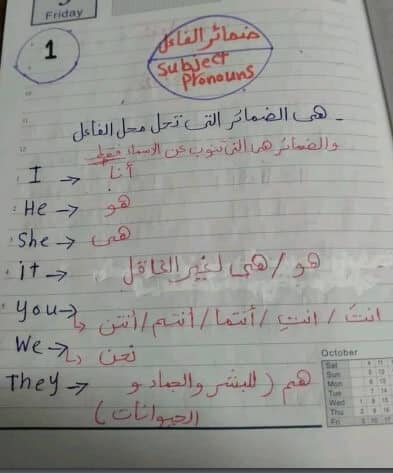 Friday
1
ضمائر الفاعل
Subject
Pronouns
- هى الضمائر التى تحل محل الفاعل
والضمائر هى التى تنوب عن الاسماء فقط
I → أنا
He → هو
She → هى
it → هو / هى لغير العاقل
you → انتَ / انتِ / أنتما / أنتم / أنتن
We → نحن
They → هم ( للبشر والجماد و
الحيوانات )
October
Sat
Sun
Mon
Tue
Wed
Thu
Fri